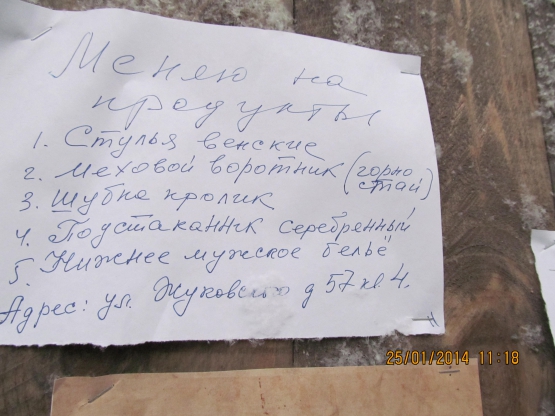 Меняю на
продукты
1. Стулья венские
2. Меховой воротник (горно
стай)
3. Шубка кролик
4. Подстаканник серебренный
5. Нижнее мужское бельё
Адрес: ул. Жуковского д 57 кв 4.
25/01/2014 11:18